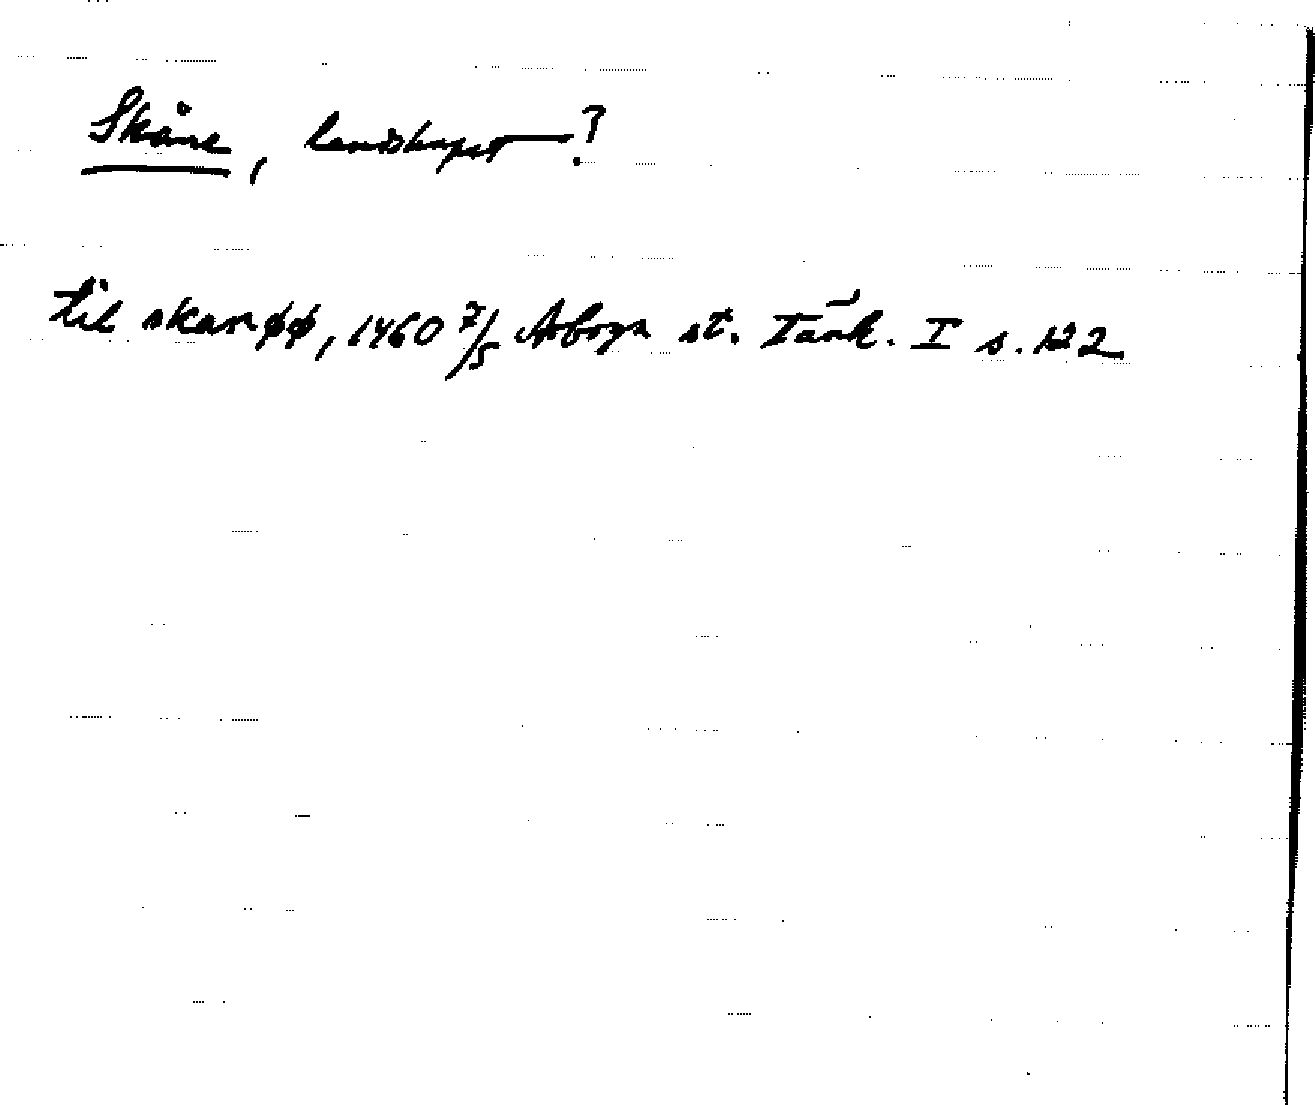 Skåne, landskapet?
til skanøø, 1460 7/5 Arboga st. Tänk. I s. 122